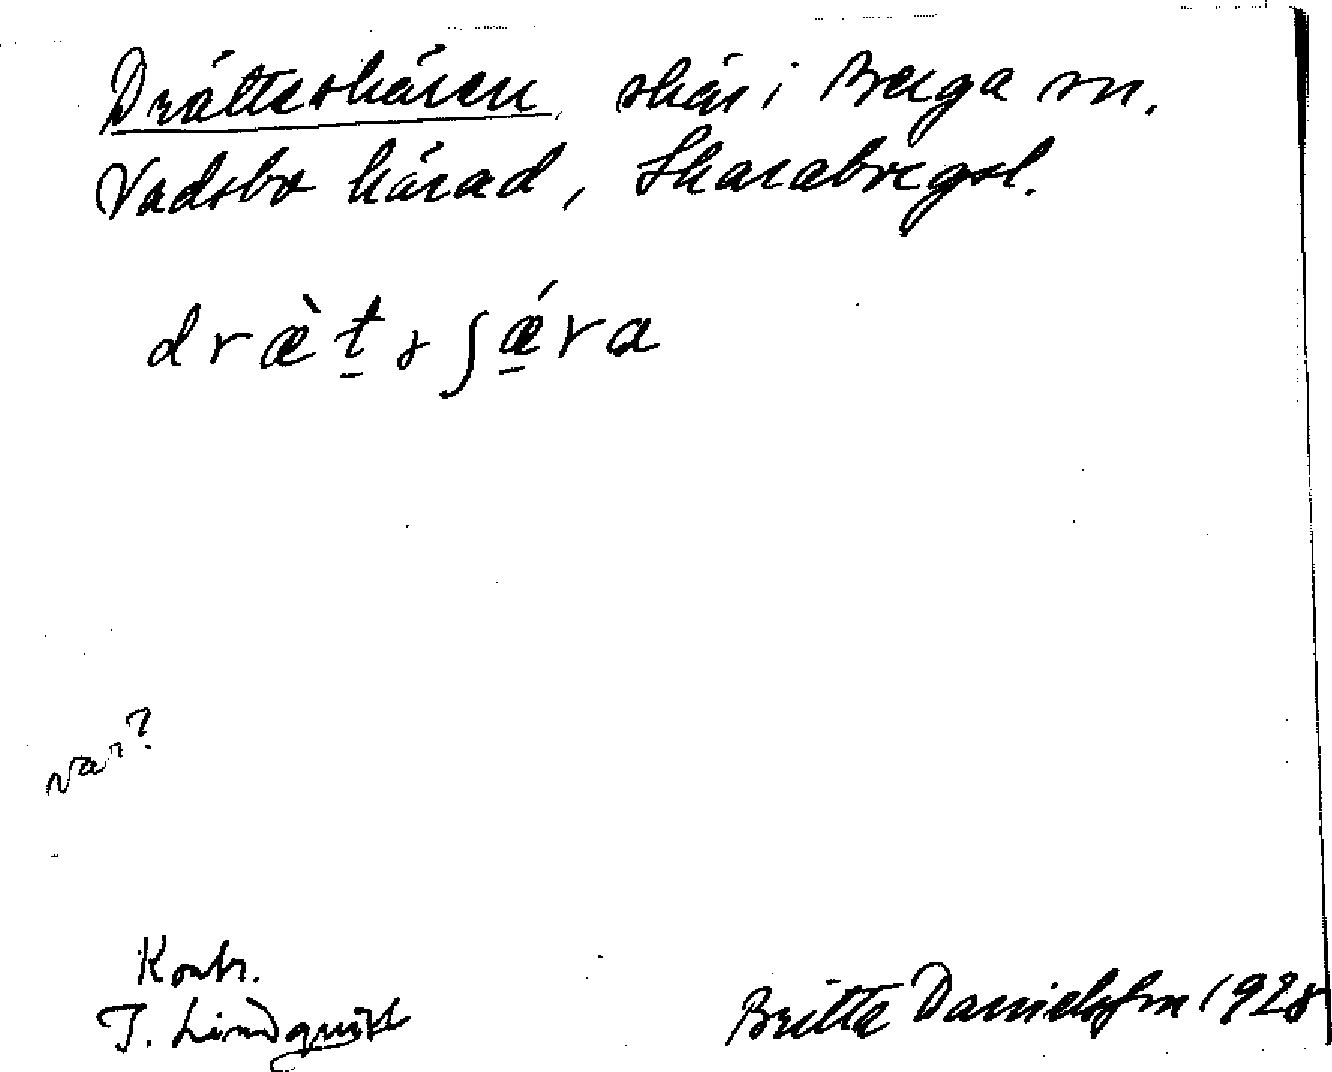 Drätteskären, skär i Berga sn.
Vadsbo härad, Skaraborgsl.
dræ̀t̠ə ʃǽ̠ra
var?
Kontr.
I. Lindquist
Britta Danielsson 1928